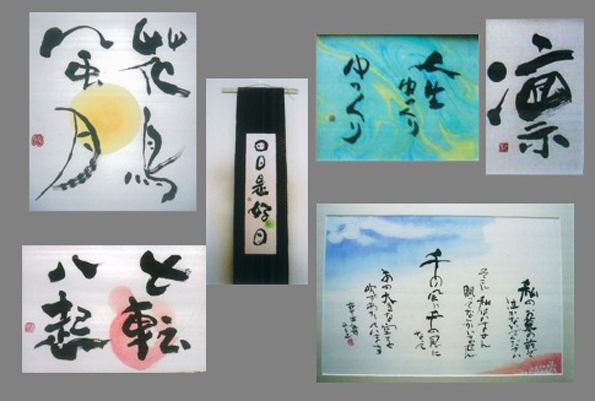 花鳥
風月
日日是好日
人生
ゆっくり
ゆっくり
凛
七転
八起
私のお墓の前で
泣かないでください
そこに私はいません
眠ってなんかいません
千の風に千の風に
なって
あの大きな空を
吹きわたっています